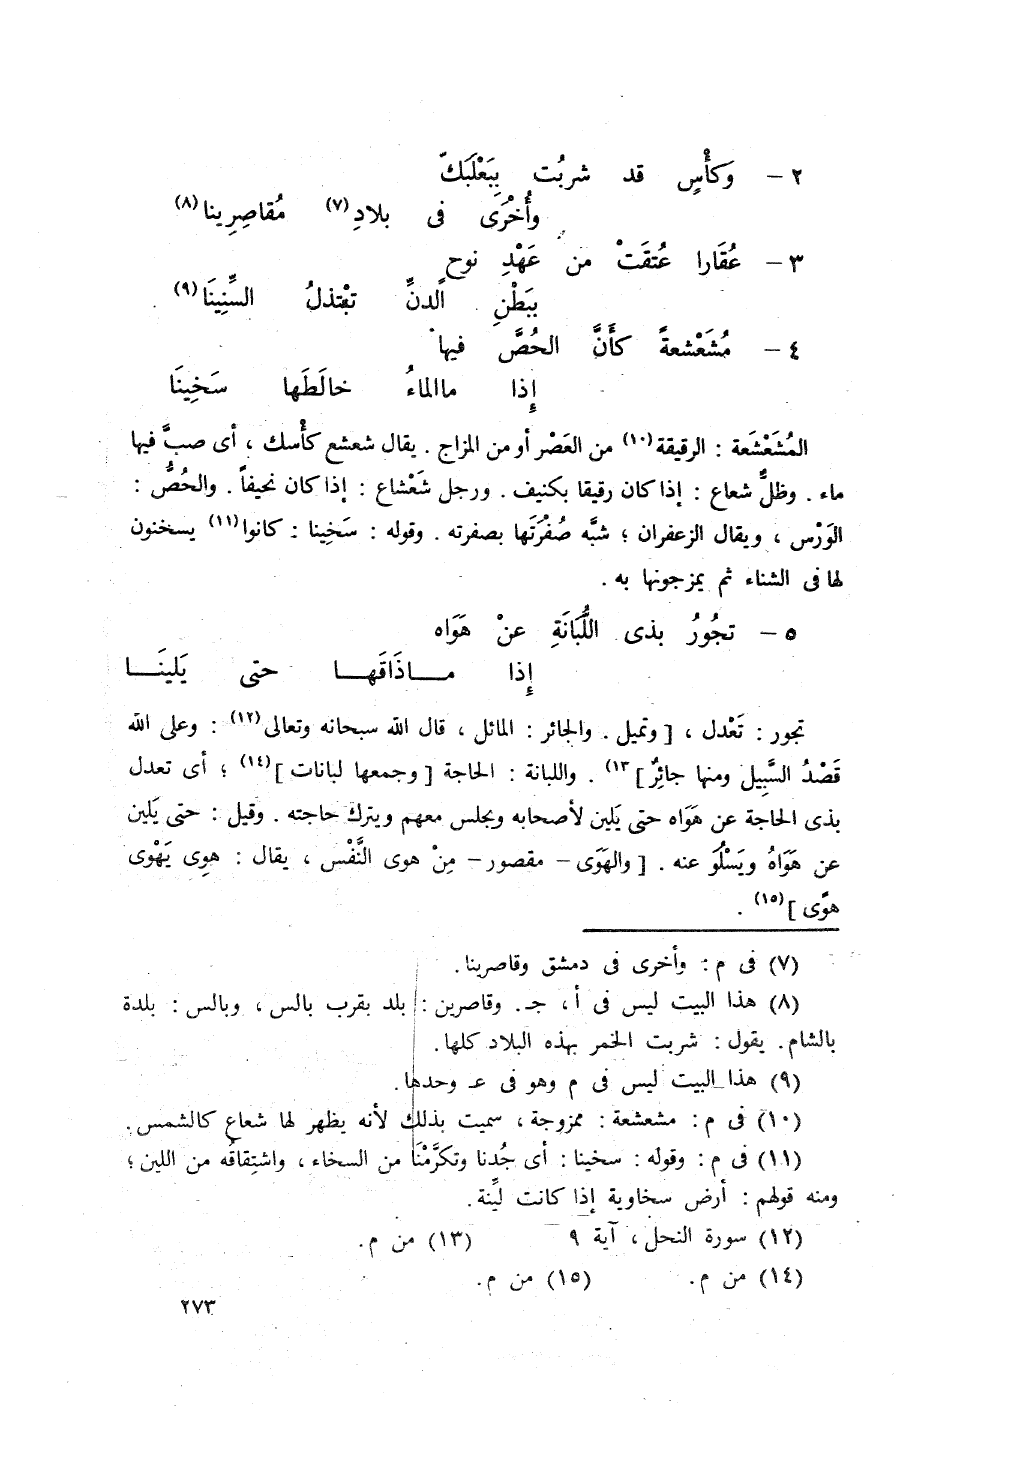 ٢ – وَكأْسٍ قد شربُت بِبَعْلَبَكّ
وأُخْرَى فى بلادِ(٧) مُقاصِرِينا(٨)
٣ – عُقَارا عُتقَتْ من عَهْدِ نوحٍ
ببَطْنِ الَدنِّ تبْتذلُ السِّنِينَا(٩)
٤ – مُشَعْشعةً كأَنَّ الحُصَّ فيها
إِذا ماالماءُ خالَطَها سَخِينَا
المُشَعْشَعة : الرقيقة(١٠) من العَصْر أو من المزاج . يقال شعشع كأْسك ، أى صبَّ فيها
ماء . وظلٌّ شعاع : إذا كان رقيقا بكنيف . ورجل شَعْشاع : إذا كان نحيفاً . والحُصُّ :
الوَرْس ، ويقال الزعفران ؛ شبَّه صُفْرَتَها بصفرته . وقوله : سَخِينا : كانوا(١١) يسخنون
لها فى الشناء ثم يمزجونها به .
٥ – تجُورُ بذى اللُّبَانَةِ عنْ هَوَاه
إِذا مـــاذَاقَهـــا حتى يَلينَـــا
تجور : تَعْدل ، [ وتميل . والجائر : المائل ، قال الله سبحانه وتعالى(١٢) : وعلى الله
قَصْدُ السَّبِيل ومنها جائِرٌ ](١٣) . واللبانة : الحاجة [ وجمعها لبانات ](١٤) ؛ أى تعدل
بذى الحاجة عن هَوَاه حتى يَلين لأصحابه ويجلس معهم ويترك حاجته . وقيل : حتى يَلين
عن هَوَاهُ ويَسْلُوَ عنه . [ والهَوَى – مقصور – مِنْ هوى النَّفْس ، يقال : هوِى يَهْوى
هوًى ](١٥) .
(٧) فى م : وأخرى فى دمشق وقاصرينا .
(٨) هذا البيت ليس فى أ ، جـ . وقاصرين : بلد بقرب بالس ، وبالس : بلدة
بالشام . يقول : شربت الخمر بهذه البلاد كلها .
(٩) هذا البيت ليس فى م وهو فى عـ وحدها .
(١٠) فى م : مشعشعة : ممزوجة ، سميت بذلك لأنه يظهر لها شعاع كالشمس .
(١١) فى م : وقوله : سخينا : أى جُدنا وتكرَّمْنَا من السخاء ، واشتِقاقُه من اللين ؛
ومنه قولهم : أرض سخاوية إذا كانت ليِّنة .
(١٢) سورة النحل ، آية ٩ (١٣) من م .
(١٤) من م . (١٥) من م .
٢٧٣